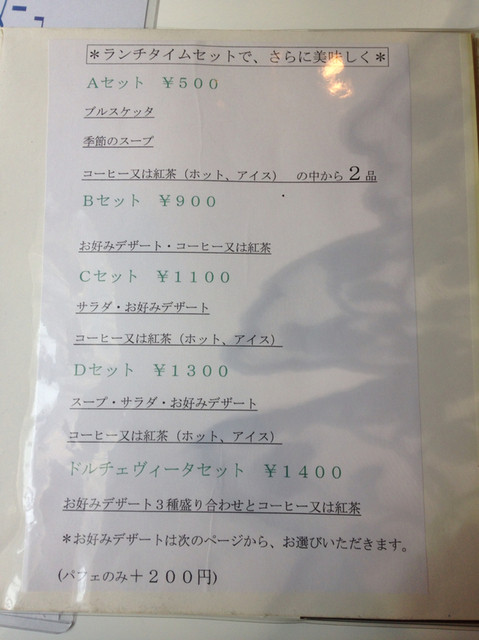 ＊ランチタイムセットで、さらに美味しく＊
Ａセット　￥５００
ブルスケッタ
季節のスープ
コーヒー又は紅茶（ホット、アイス）　の中から２品
Ｂセット　￥９００
お好みデザート・コーヒー又は紅茶
Ｃセット　￥１１００
サラダ・お好みデザート
コーヒー又は紅茶（ホット、アイス）
Ｄセット　￥１３００
スープ・サラダ・お好みデザート
コーヒー又は紅茶（ホット、アイス）
ドルチェヴィータセット　￥１４００
お好みデザート３種盛り合わせとコーヒー又は紅茶
＊お好みデザートは次のページから、お選びいただきます。
(パフェのみ＋２００円)